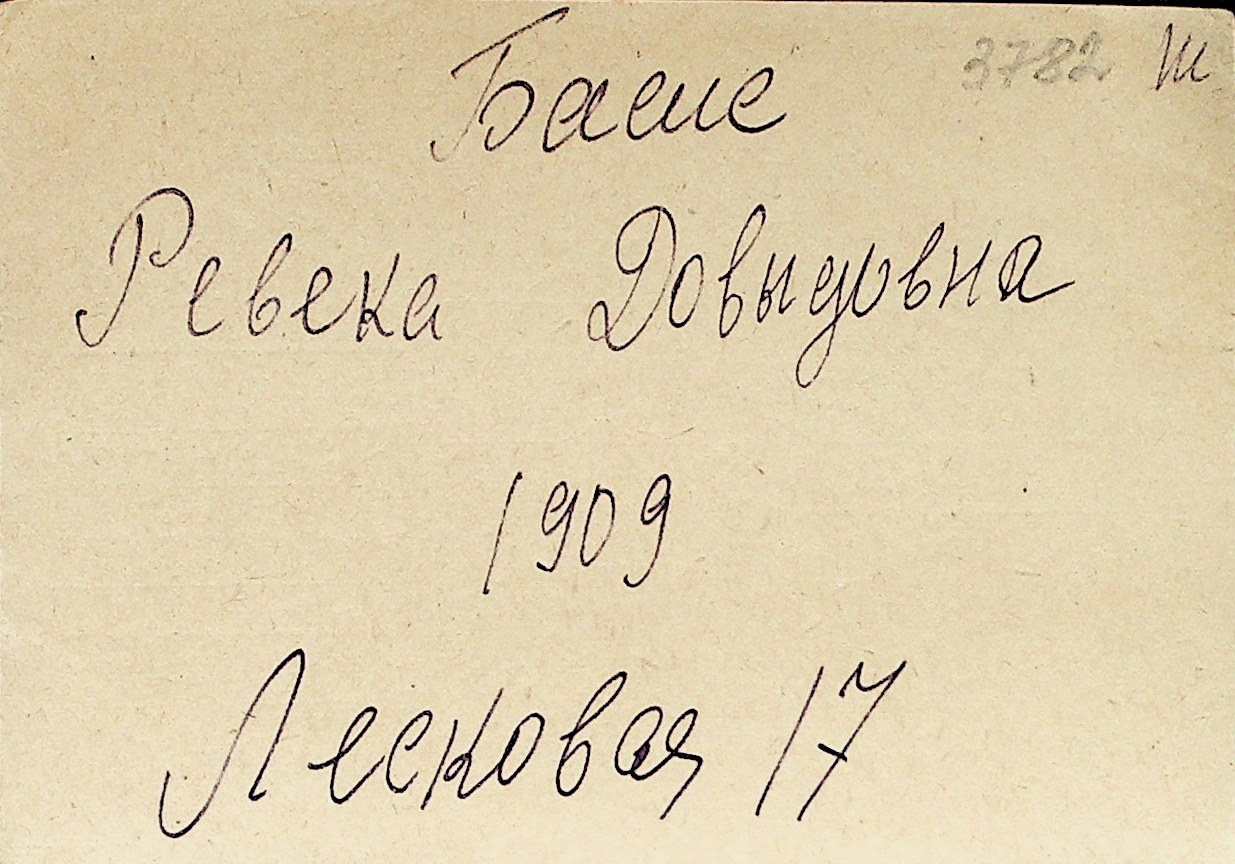 3782 Ш
Басис
Ревека Довыдовна
1909
Лесковая 17